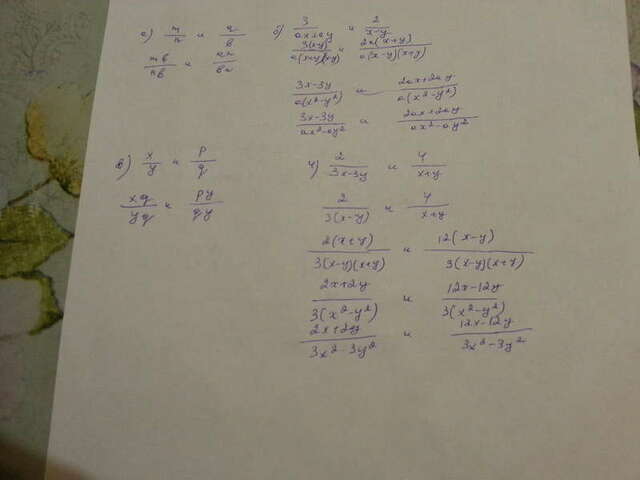 а) m/n и a/в
mв/nв и an/вn
б) 3/(ax+ay) и 2/(x-y)
3(x-y)/(a(x+y)(x-y)) и 2a(x+y)/(a(x-y)(x+y))
(3x-3y)/(a(x²-y²)) и (2ax+2ay)/(a(x²-y²))
(3x-3y)/(ax²-ay²) и (2ax+2ay)/(ax²-ay²)
в) x/y и p/q
xq/yq и py/qy
ч) 2/(3x-3y) и 4/(x+y)
2/(3(x-y)) и 4/(x+y)
2(x+y)/(3(x-y)(x+y)) и 12(x-y)/(3(x-y)(x+y))
(2x+2y)/(3(x²-y²)) и (12x-12y)/(3(x²-y²))
(2x+2y)/(3x²-3y²) и (12x-12y)/(3x²-3y²)